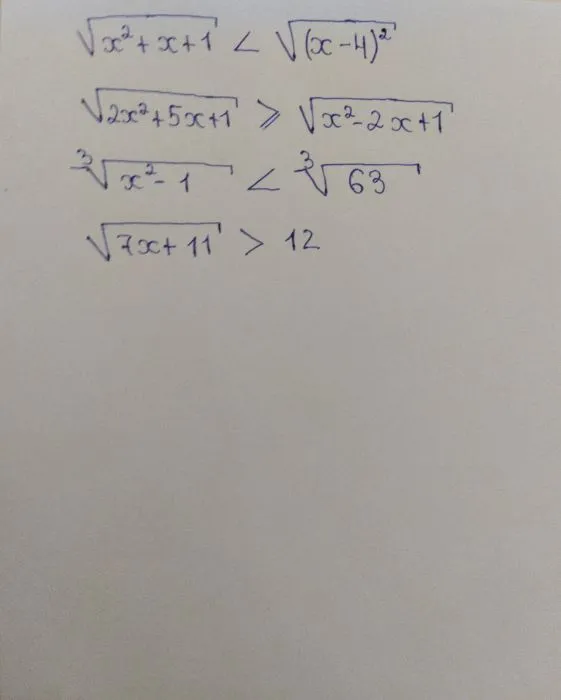 √(x²+x+1) < √((x-4)²)
√(2x²+5x+1) ⩾ √(x²-2x+1)
³√(x²-1) < ³√63
√(7x+11) > 12